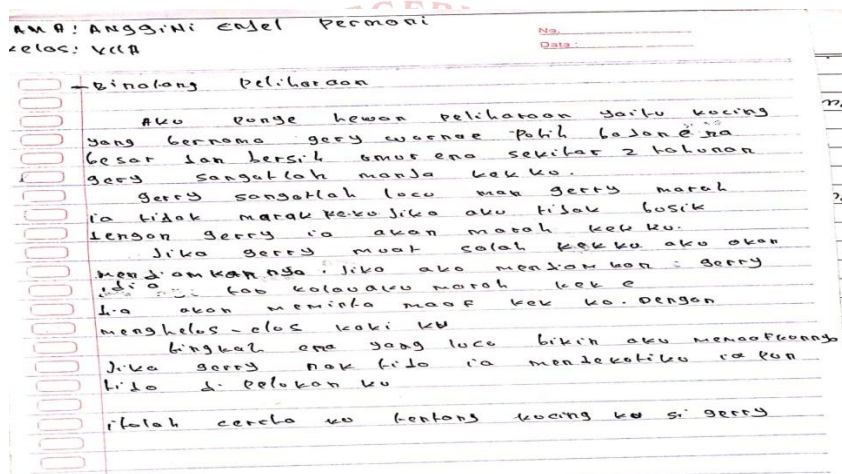 AMA: ANGGINI ENJEL PERMONI
kelas: VIIA
No.
Date:
- Binatang Peliharaan
Aku punye hewan peliharaan yaitu kucing
yang bernama gery warnae Putih badane na
besar dan bersih omur ena sekitar 2 tahunan
gery sangatlah manja kek ku.
gerry sangatlah lucu man gerry marah
ia tidak marah ke ku Jika aku tidak busik
dengan gerry ia akan marah kek ku.
Jika gerry muat salah kek ku aku akan
mendiamkannya. Jika aku mendiamkan gerry
dia tau kalau aku marah kek e
dia akan meminta maaf kek ku. Dengan
menghelus-elus kaki ku
tingkah ena yang lucu bikin aku memaafkannya
Jika gerry nak tido ia mendekatiku ia pun
tido di pelukan ku
itulah cerita ku tentang kucing ku si gerry